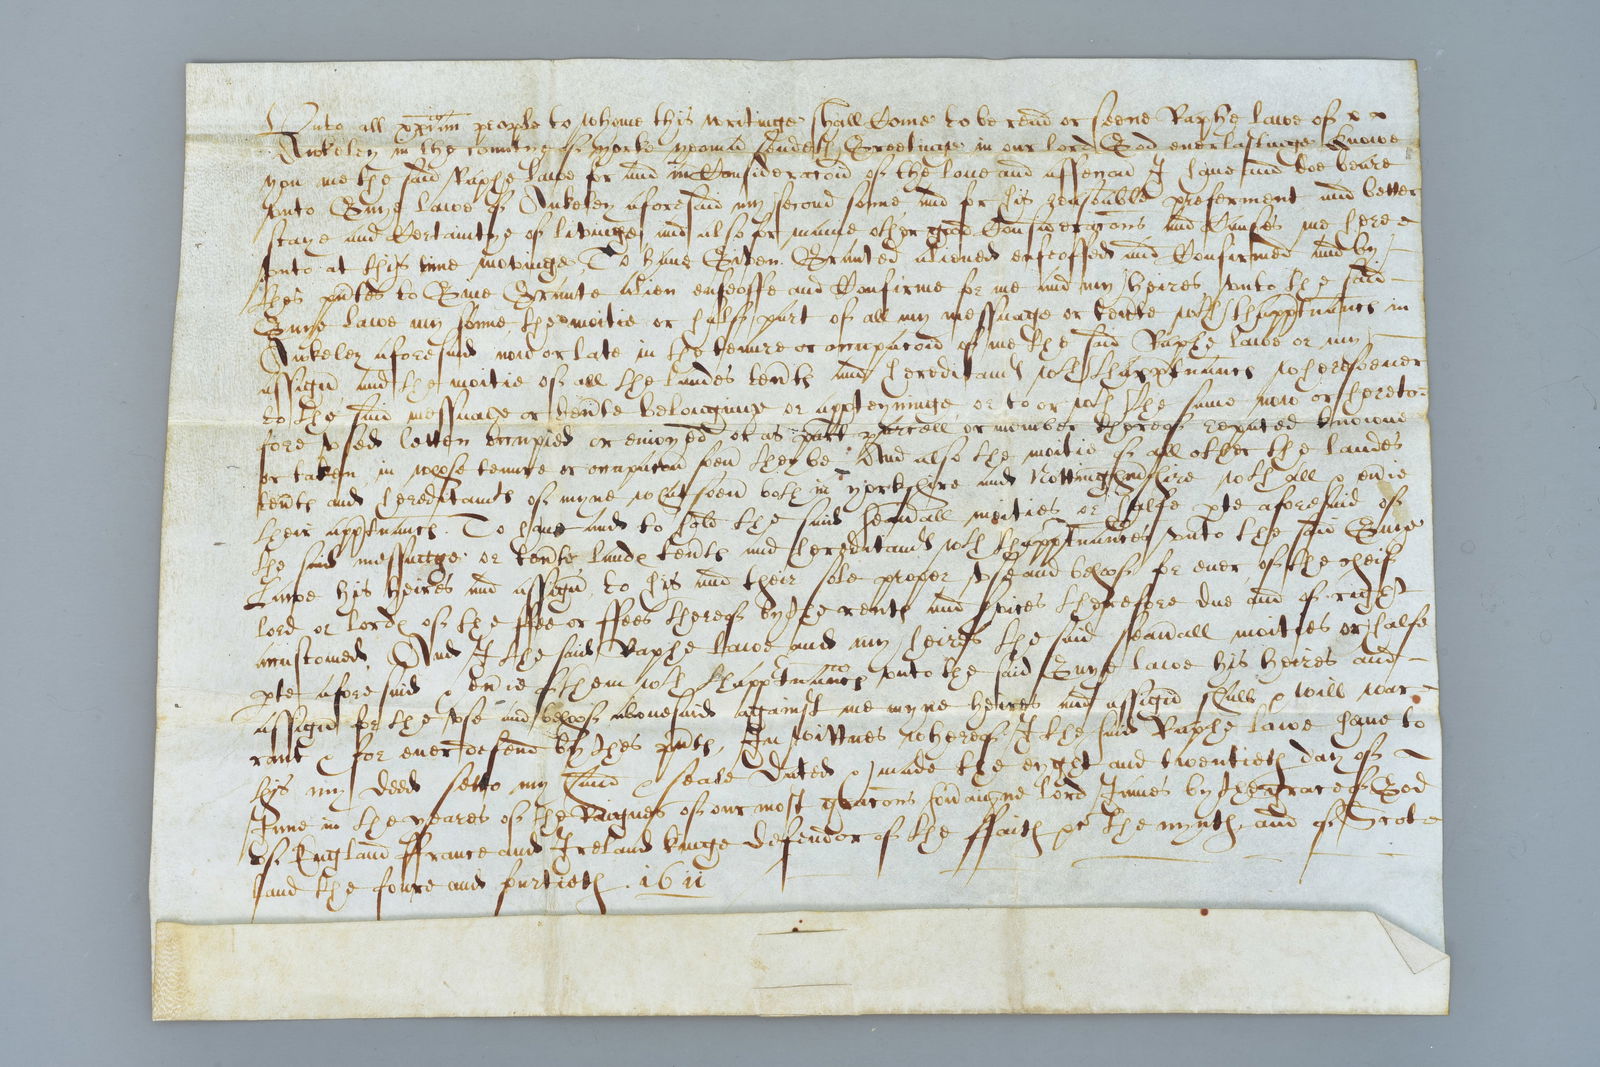 Unto all xpian people to whome this writinge shall Come to be read or seene Raphe Lawe of
Ankeley in the countye of yorke yeoman sendeth Greetinge in our lord God everlastinge Knowe
you me the said Raphe Lawe for and in Consideracon of the love and affeccon I have and doe beare
unto Guye Lawe of Ankeley aforesaid my second sonne and for his reasonable preferment and better
staye and Certaintye of livinge and also for manie other good Consideracons and Causes me here
unto at this time movinge To have Given Graunted aliened enfeoffed and Confirmed and by
thes pnts to Give Graunte alien enfeoffe and Confirme for me and my heires unto the said
Guye Lawe my sonne the moitie or halfe part of all my messuage or tente wth thappртnncs in
Ankeley aforesaid now or late in the tenure or occupacon of me the said Raphe Lawe or my
assigns and the moitie of all the landes tents and hereditamts wth thapptnncs whersoever
to the said messuage or tente belonginge or apptayninge or to or wth the same now or hereto=
fore used letten occupied or enioyed or as part parcell or member thereof reputed knowne
or taken in whose tenure or occupacon soevr they be And also the moitie of all other the landes
tents and hereditamts of myne whatsoevr both in yorkshire and Nottinghamshire wth all & evrie
their apptnncs To have and to hold the said sevrall moities or halfe pte aforesaid of
the said messuage or tente lands tents and hereditamts wth thapptnnces unto the said Guye
Lawe his heires and assigns to his and their sole proper use and behoof for ever of the cheif
lord or lords of the ffee or ffees thereof by the rents and svices therefore due and of right
accustomed And I the said Raphe Lawe and my heires the said sevrall moities or halfe
pte aforesaid & evrie of them wth thapptnncs unto the said Guye Lawe his heires and
assigns for the use and behoof abovesaid against me myne heires and assigns shall & will war=
rant & for ever defend by thes pnts In wittnes whereof I the said Raphe Lawe have to
this my deede sette my hand & seale Dated & made the eyght and twentieth day of
June in the yeares of the Raignes of our most gracous sovraigne lord James by the grace of God
of England ffrance and Ireland kinge defendor of the ffaith &c the nynth and of Scot=
land the foure and fortieth 1611